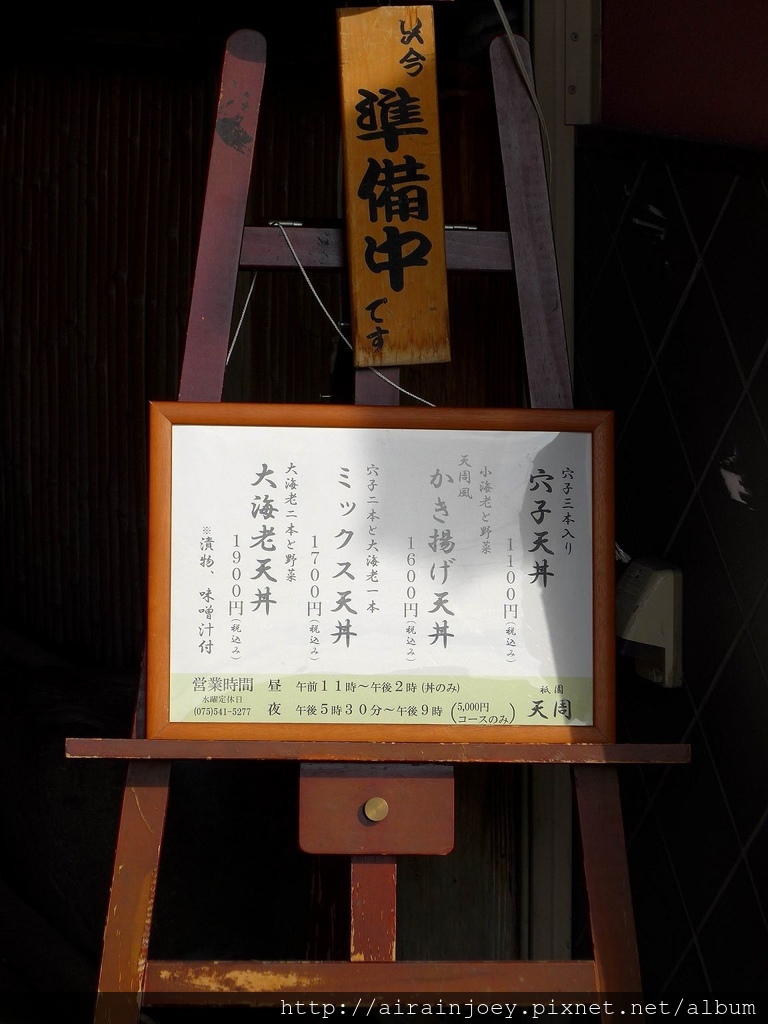 只今
準備中
です
穴子三本入り
穴子天丼
1100円(税込み)
小海老と野菜
天周風
かき揚げ天丼
1600円(税込み)
穴子二本と大海老一本
ミックス天丼
1700円(税込み)
大海老二本と野菜
大海老天丼
1900円(税込み)
※漬物、味噌汁付
営業時間 昼 午前11時～午後2時(丼のみ)
水曜定休日
(075)541-5277
夜 午後5時30分～午後9時(5,000円コースのみ)
祇園
天周
http://airainjoey.pixnet.net/album